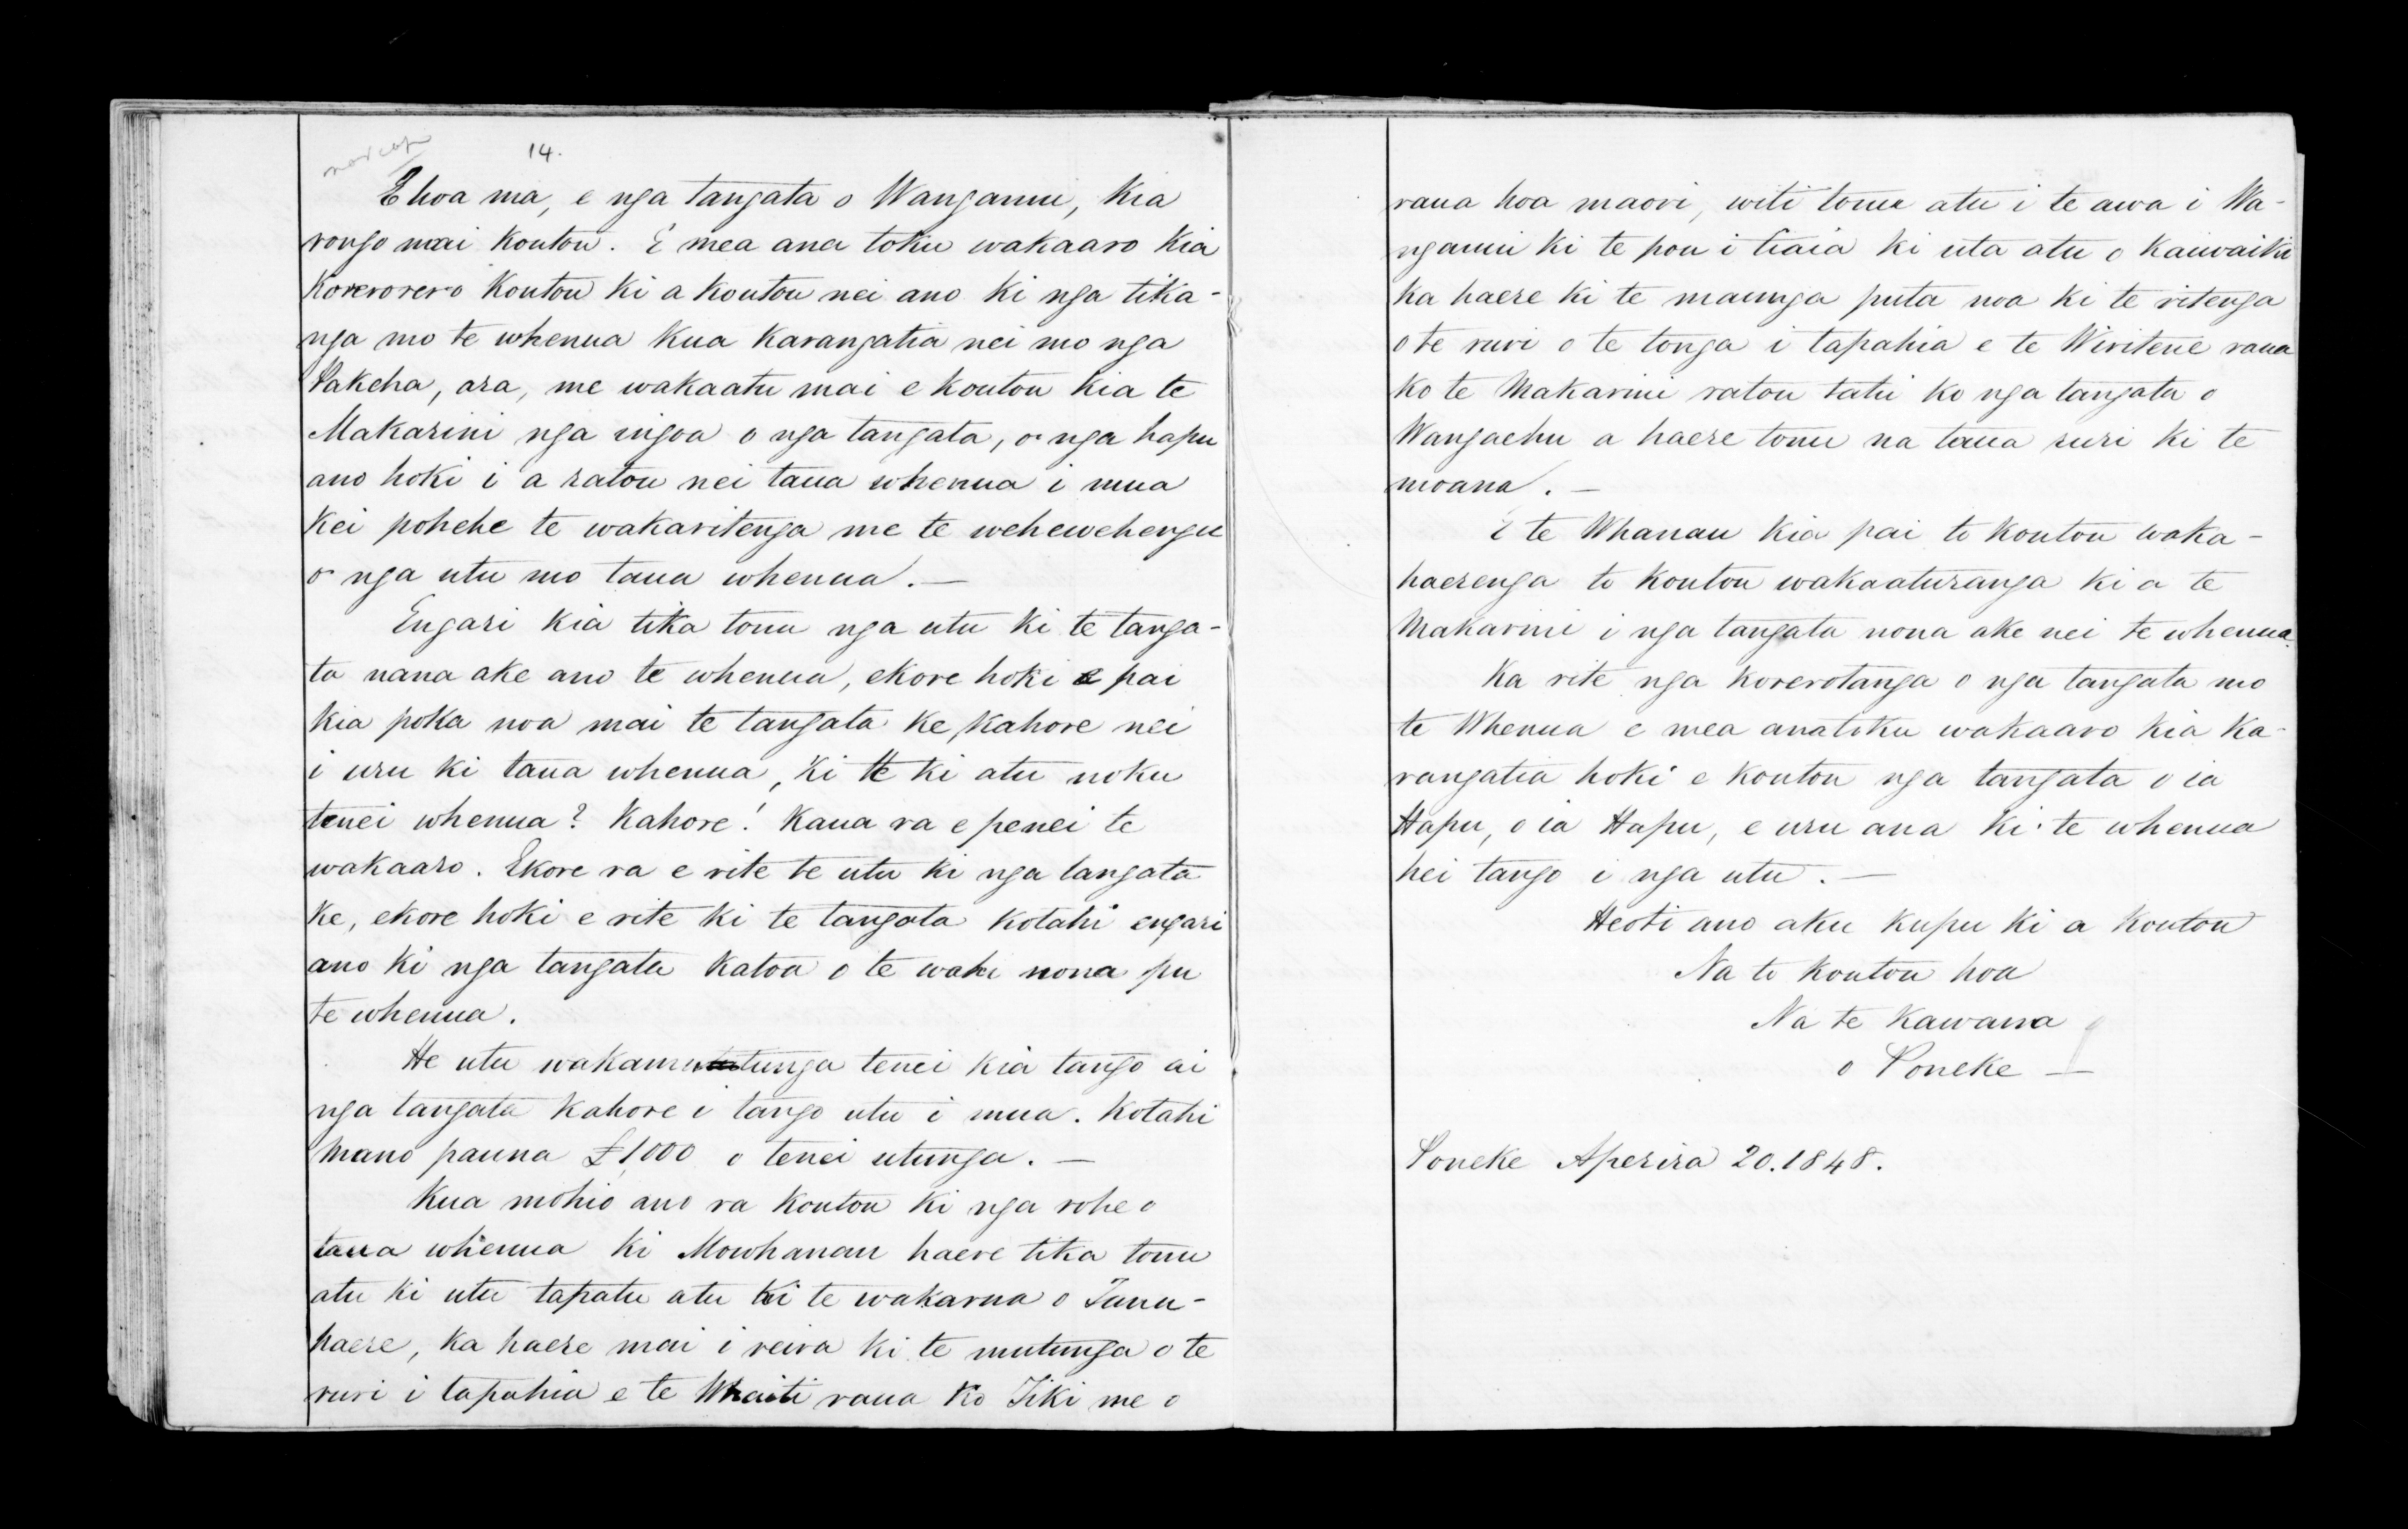 14.
E hoa ma, e nga tangata o Wanganui, kia
rongo mai koutou. E mea ana toku wakaaro kia
korerorero koutou ki a koutou nei ano ki nga tika-
nga mo te whenua kua karangatia nei mo nga
Pakeha, ara, me wakaatu mai e koutou kia te
Makarini nga ingoa o nga tangata, o nga hapu
ano hoki i a ratou nei taua whenua i mua
kei pohehe te wakaritenga me te wehewehenga
o nga utu mo taua whenua. —
Engari kia tika tonu nga utu ki te tanga-
ta nana ake ano te whenua, ekore hoki e pai
kia poka noa mai te tangata ke, kahore nei
i uru ki taua whenua, ki te ki atu noku
tenei whenua? Kahore! Kaua ra e penei te
wakaaro. Ekore ra e rite te utu ki nga tangata
ke, ekore hoki e rite ki te tangata kotahi engari
ano ki nga tangata katoa o te wahi nona pu
te whenua.
He utu wakamutunga tenei kia tango ai
nga tangata kahore i tango utu i mua. Kotahi
mano pauna £1,000 o tenei utunga. —
Kua mohio ano ra koutou ki nga rohe o
taua whenua ki Mowhanau haere tika tonu
atu ki uta tapatu atu ki te wakarua o Tunu-
haere, ka haere mai i reira ki te mutunga o te
ruri i tapahia e te Whaiti raua ko Tiki me o
raua hoa maori, witi tonu atu i te awa i Wa-
nganui ki te pou i tiaia ki uta atu o Kaiwaiki
ka haere ki te maunga puta noa ki te ritenga
o te ruri o te tonga i tapahia e te Wiritene raua
ko te Makarini ratou tahi ko nga tangata o
Wangaehu a haere tonu na taua ruri ki te
moana. —
E te Whanau kia pai to koutou waka-
haerenga to koutou wakaaturanga ki a te
Makarini i nga tangata nona ake nei te whenua.
Ka rite nga korerotanga o nga tangata mo
te Whenua e mea ana toku wakaaro kia ka-
rangatia hoki e koutou nga tangata o ia
Hapu, o ia Hapu, e uru ana ki te whenua
hei tango i nga utu. —
Heoti ano aku kupu ki a koutou
Na to koutou hoa
Na te Kawana
o Poneke —
Poneke Aperira 20.1848.